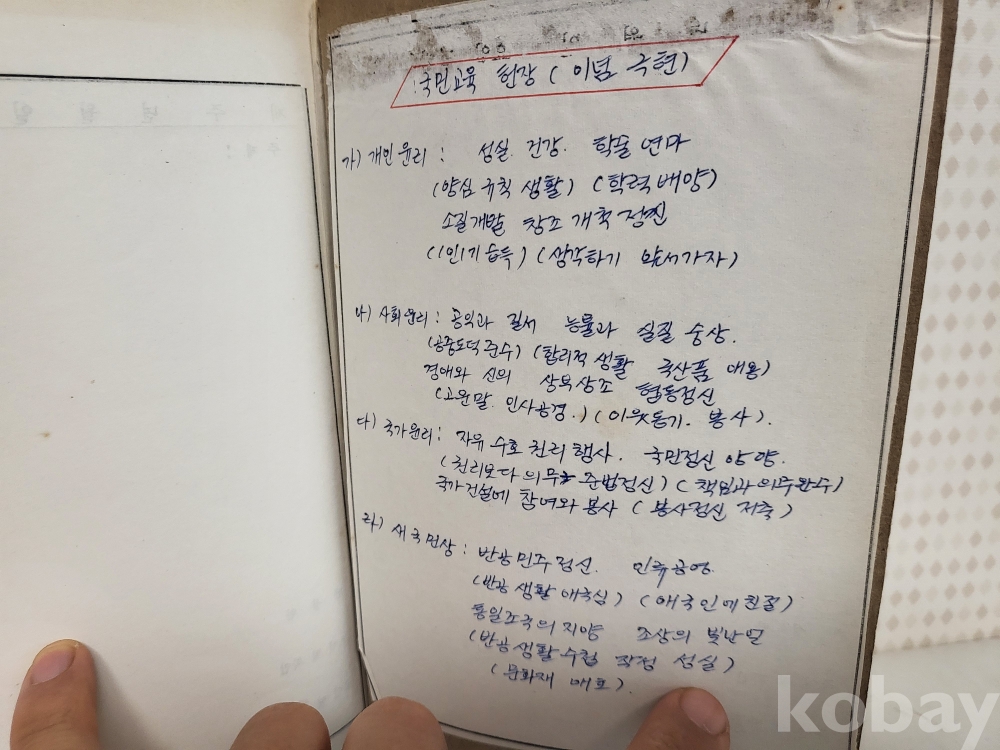 국민교육 헌장 (이념 구현)
가) 개인윤리 : 성실. 건강. 학문 연마
(양심 규칙 생활) (학력배양)
소질개발 창조 개척정신
(1인1기습득) (생각하기 앞서가자)
나) 사회윤리 : 공익과 질서 능률과 실질 숭상.
(공중도덕준수) (합리적 생활 국산품 애용)
경애와 신의 상부상조 협동정신
(고운말. 인사공경.) (이웃돕기. 봉사).
다) 국가윤리 : 자유 수호 권리행사. 국민정신 앙양.
(권리보다 의무 준법정신) (책임과 의무완수)
국가건설에 참여와 봉사 (봉사정신 저축)
라) 새국민상 : 반공민주정신. 인류공영.
(반공생활 애국심) (애국인에 친절)
통일조국의 지양 조상의 빛난 얼
(반공생활수첩 작정 성실)
(문화재 애호).
kobay